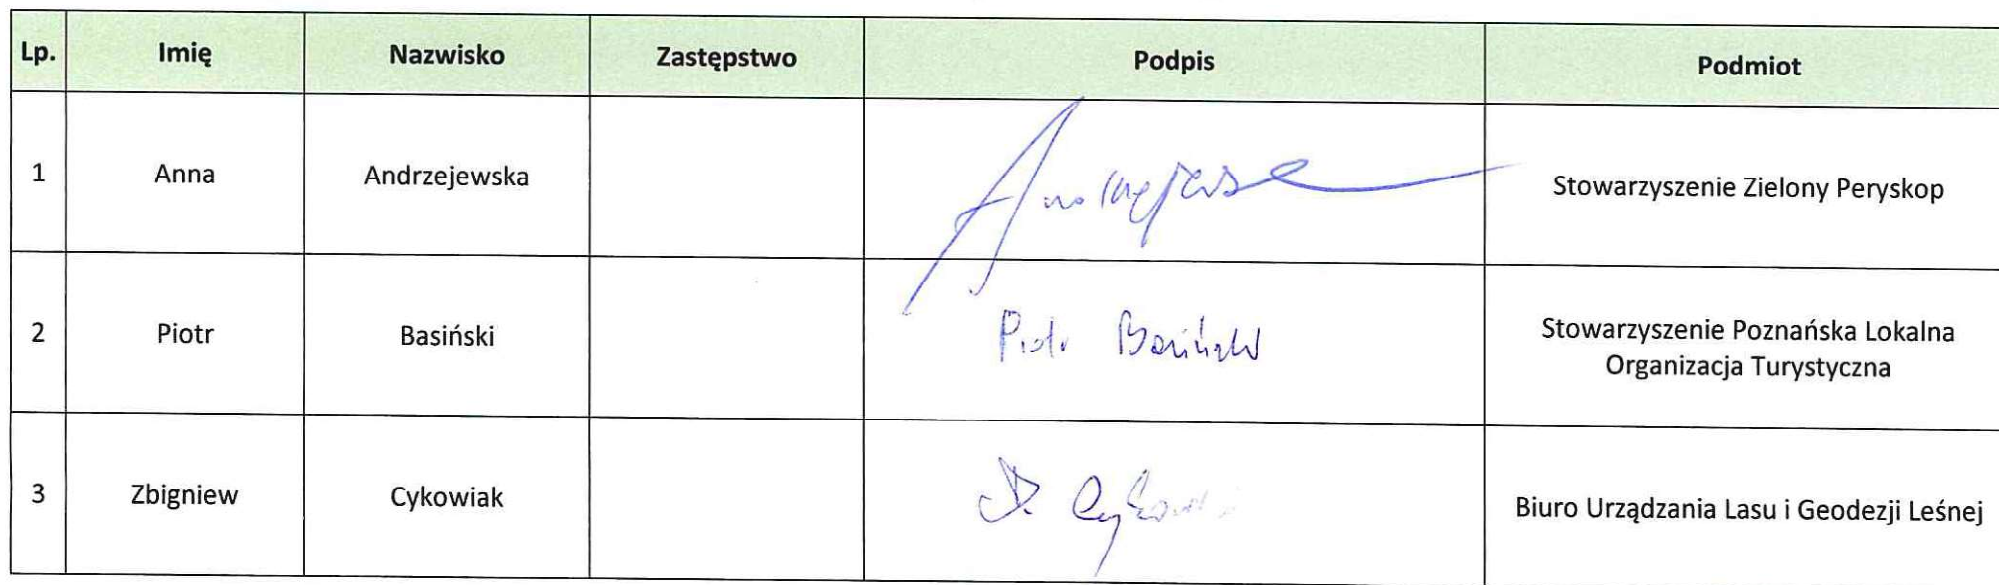 Lp. Imię Nazwisko Zastępstwo Podpis Podmiot
1 Anna Andrzejewska Stowarzyszenie Zielony Peryskop
2 Piotr Basiński Piotr Basiński Stowarzyszenie Poznańska Lokalna
Organizacja Turystyczna
3 Zbigniew Cykowiak Biuro Urządzania Lasu i Geodezji Leśnej